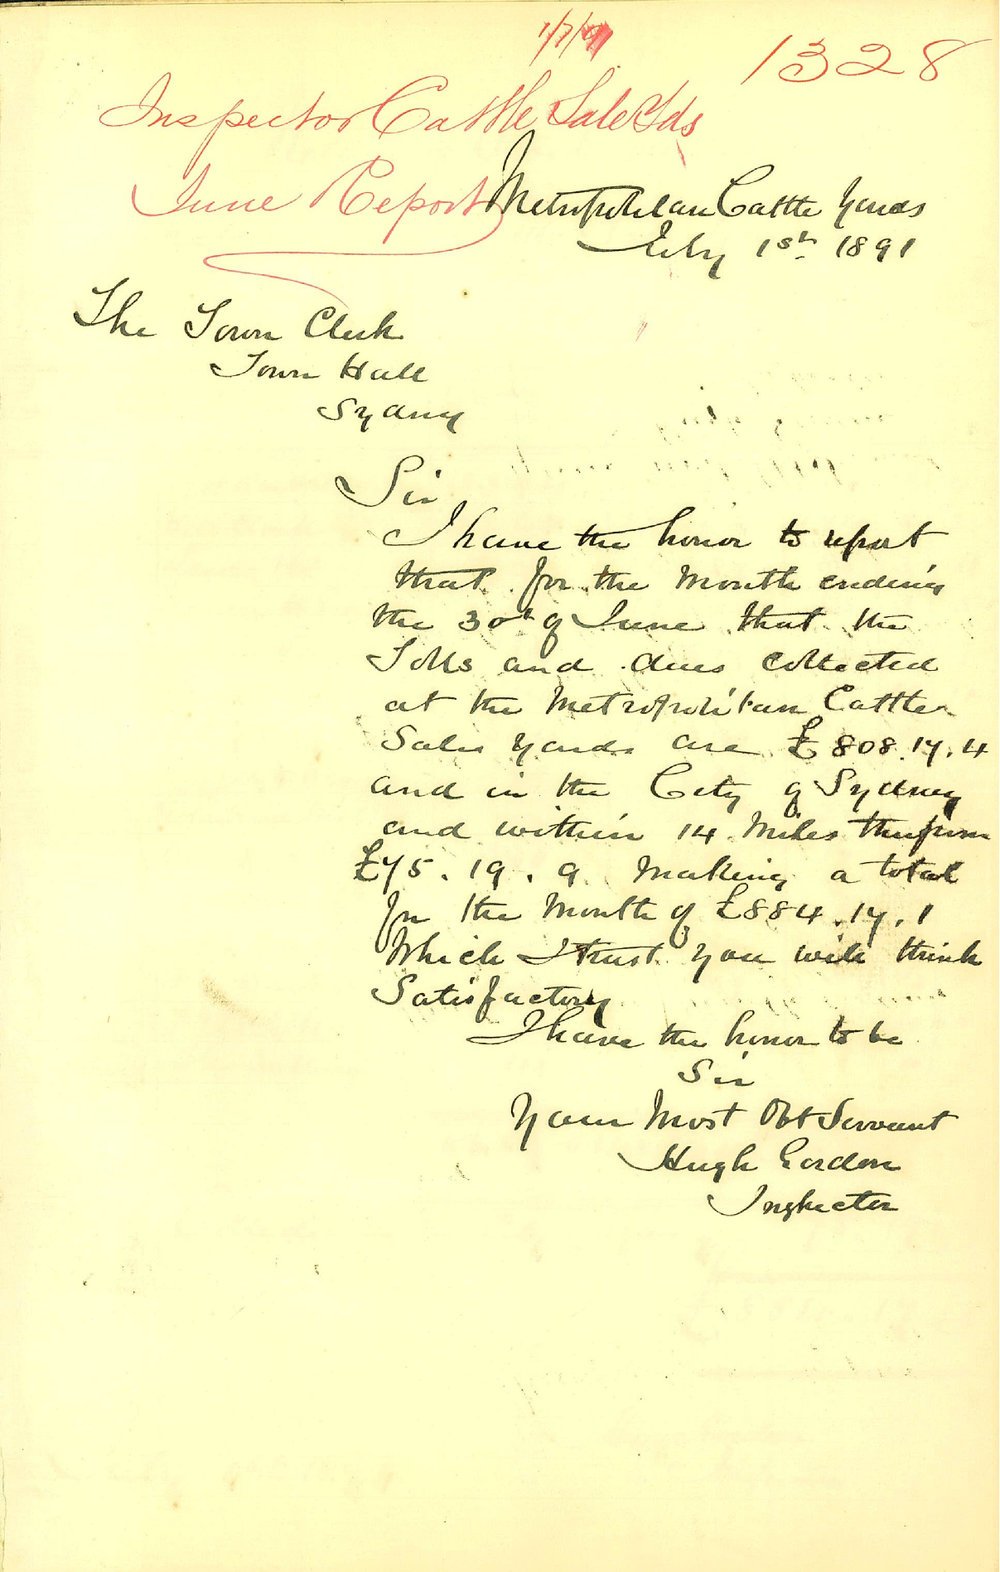 1/7/91
1328
Inspector Cattle Sale Yds
June Report
Metropolitan Cattle Yards
July 1st 1891
The Town Clerk
Town Hall
Sydney
Sir
I have the honor to report
that for the Month ending
the 30th of June that the
Tolls and dues collected
at the Metropolitan Cattle
Sales Yards are £808.17.4
and in the City of Sydney
and within 14 Miles therefrom
£75.19.9 Making a total
for the Month of £884.17.1
Which I trust you will think
Satisfactory
I have the honor to be
Sir
Your Most Obt Servant
Hugh Gordon
Inspector